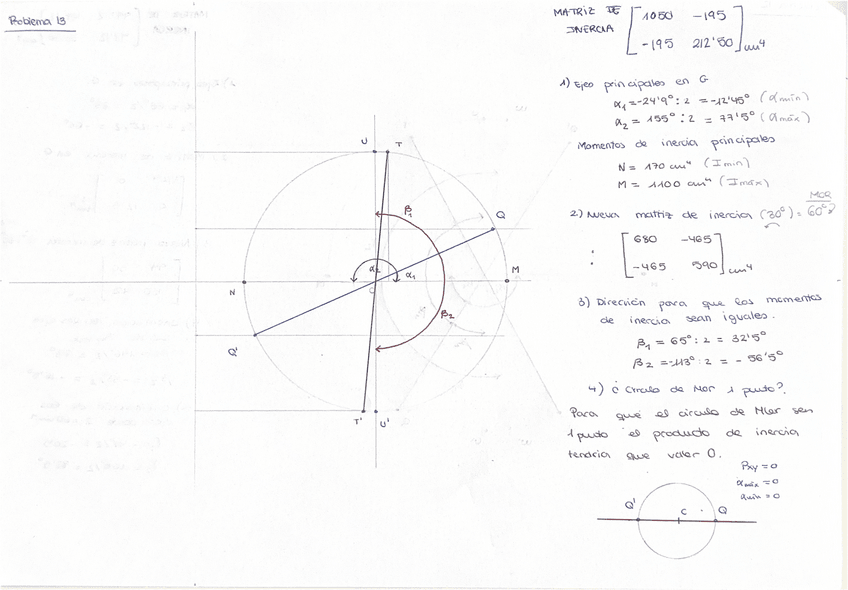 Problema 13
MATRIZ DE INERCIA [1050 -195
-195 212'50] cm⁴
1) Ejes principales en G
α₁ = -24'9° : 2 = -12'45° (αmín)
α₂ = 155° : 2 = 77'5° (αmáx)
Momentos de inercia principales
N = 170 cm⁴ (Imín)
M = 1100 cm⁴ (Imáx)
2) Nueva matriz de inercia (30°) = MOR 60°
: [680 -465
-465 590] cm⁴
3) Dirección para que los momentos
de inercia sean iguales.
β₁ = 65° : 2 = 32'5°
β₂ = -113° : 2 = -56'5°
4) ¿ Círculo de Mor 1 punto?.
Para que el círculo de Mor sea
1 punto el producto de inercia
tendría que valer 0.
Pxy = 0
αmáx = 0
αmín = 0
Q' C Q
U T
β₁
Q
α₂ α₁
M
N C
β₂
Q'
T' U'